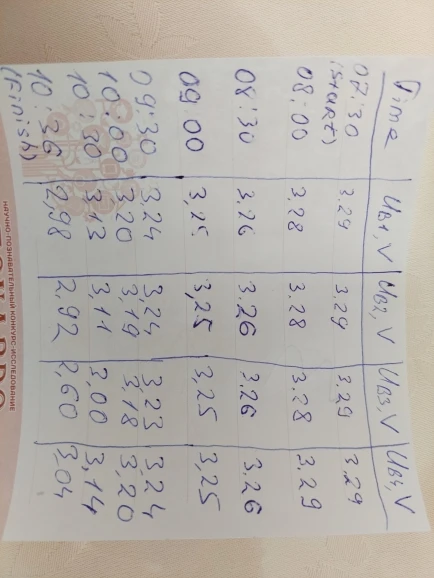 Time UB1, V UB2, V UB3, V UB4, V
07:30 3.29 3.29 3.29 3.29
(Start)
08:00 3.28 3.28 3.28 3.29
08:30 3.26 3.26 3.26 3.26
09:00 3,25 3,25 3,25 3,25
09:30 3,24 3,24 3,23 3,24
10:00 3,20 3,19 3,18 3,20
10:30 3,13 3,11 3,00 3,14
10:36 2,98 2,92 2,60 3,04
(Finish)
НАУЧНО-ПОЗНАВАТЕЛЬНЫЙ КОНКУРС-ИССЛЕДОВАНИЕ